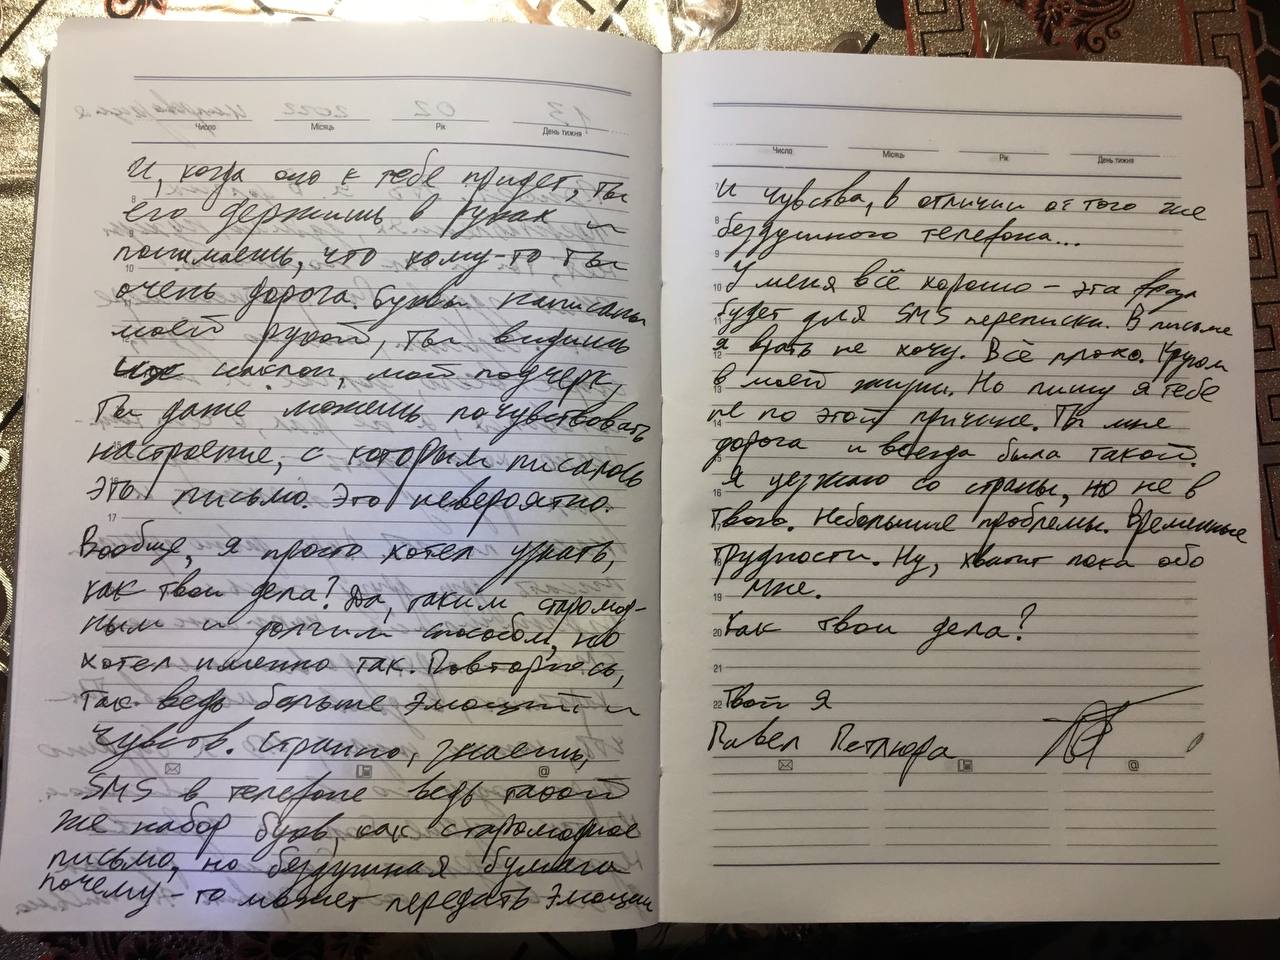 Число Місяць Рік День тижня
И, когда оно к тебе придет, ты
его держишь в руках и
понимаешь, что кому-то ты
очень дорога. Буквы написаны
моей рукой, ты видишь
наклон, мой подчерк,
Ты даже можешь почувствовать
настроение, с которым писалось
это письмо. Это невероятно.
Вообще, я просто хотел узнать,
как твои дела? Да, таким старомод-
ным и долгим способом, но
хотел именно так. Повторюсь,
так ведь больше эмоций и
чувств. Странно, знаешь,
SMS в телефоне ведь такой
же набор букв, как старомодное
письмо, но бездушная бумага
почему-то может передать эмоции
Число Місяць Рік День тижня
и чувства, в отличии от того же
бездушного телефона...
У меня всё хорошо - эта фраза
будет для SMS переписки. В письме
я врать не хочу. Всё плохо. Кругом
в моей жизни. Но пишу я тебе
не по этой причине. Ты мне
дорога и всегда была такой.
Я уезжаю со страны, но не в
твою. Небольшие проблемы. Временные
трудности. Ну, хватит пока обо
мне.
Как твои дела?
Твой я
Павел Петлюра